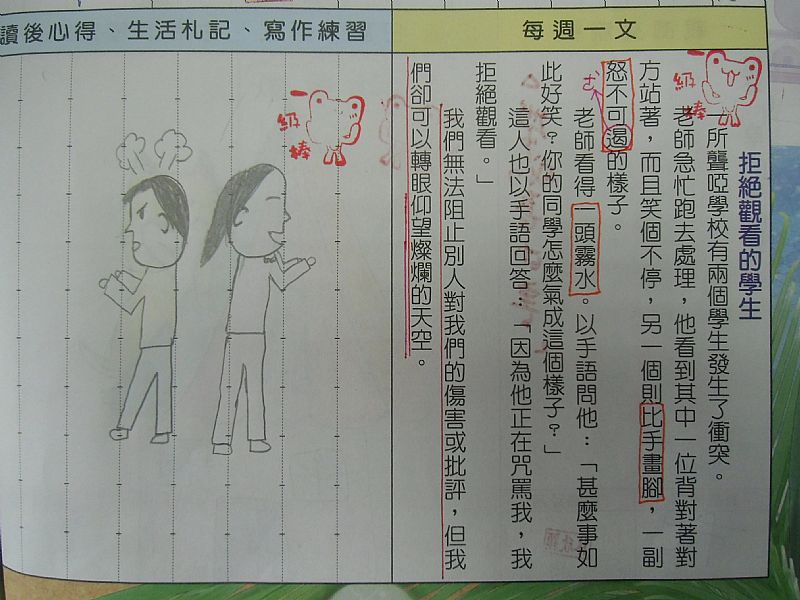 每週一文
拒絕觀看的學生
所聾啞學校有兩個學生發生了衝突。
老師急忙跑去處理，他看到其中一位背對著對
方站著，而且笑個不停，另一個則比手畫腳，一副
怒不可遏的樣子。
老師看得一頭霧水。以手語問他：「甚麼事如
此好笑？你的同學怎麼氣成這個樣子？」
這人也以手語回答：「因為他正在咒罵我，我
拒絕觀看。」
我們無法阻止別人對我們的傷害或批評，但我
們卻可以轉眼仰望燦爛的天空。
一級棒
讀後心得、生活札記、寫作練習
一級棒